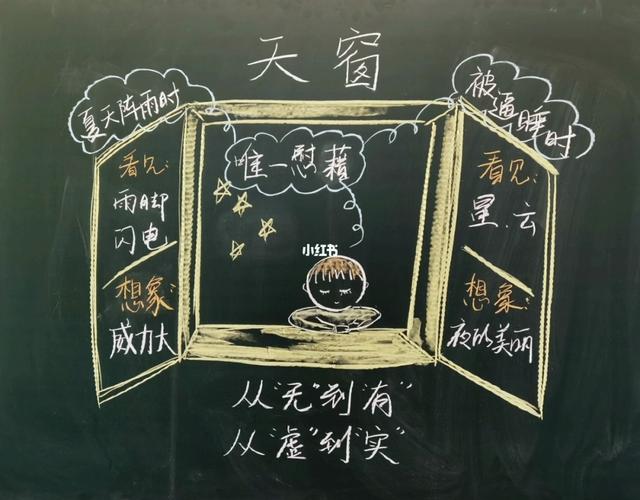 天窗
夏天阵雨时
被逼睡时
唯一慰藉
看见:
雨脚
闪电
想象:
威力大
看见:
星.云
想象:
夜的美丽
小红书
从“无”到“有”
从“虚”到“实”